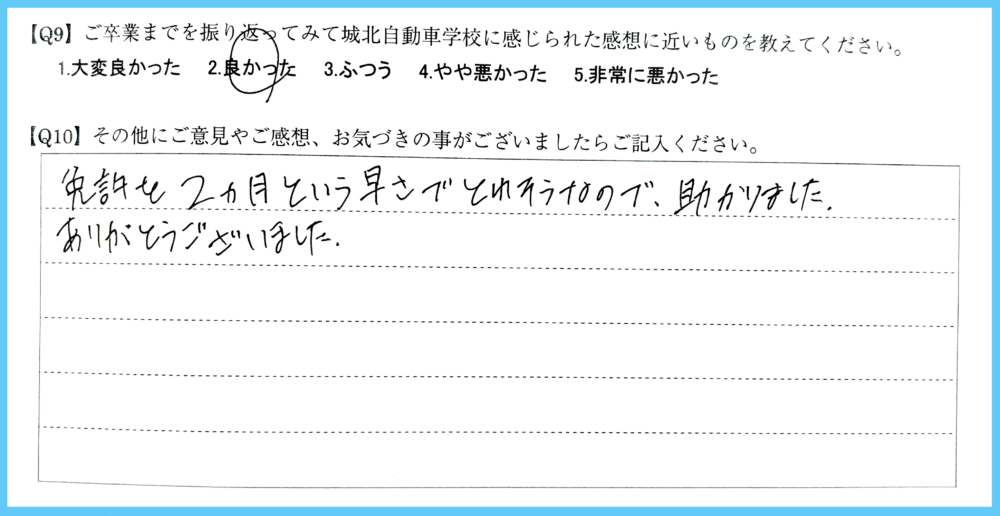 【Q9】ご卒業までを振り返ってみて城北自動車学校に感じられた感想に近いものを教えてください。
1.大変良かった 2.良かった 3.ふつう 4.やや悪かった 5.非常に悪かった
【Q10】その他にご意見やご感想、お気づきの事がございましたらご記入ください。
免許を2ヵ月という早さでとれそうなので、助かりました.
ありがとうございました.